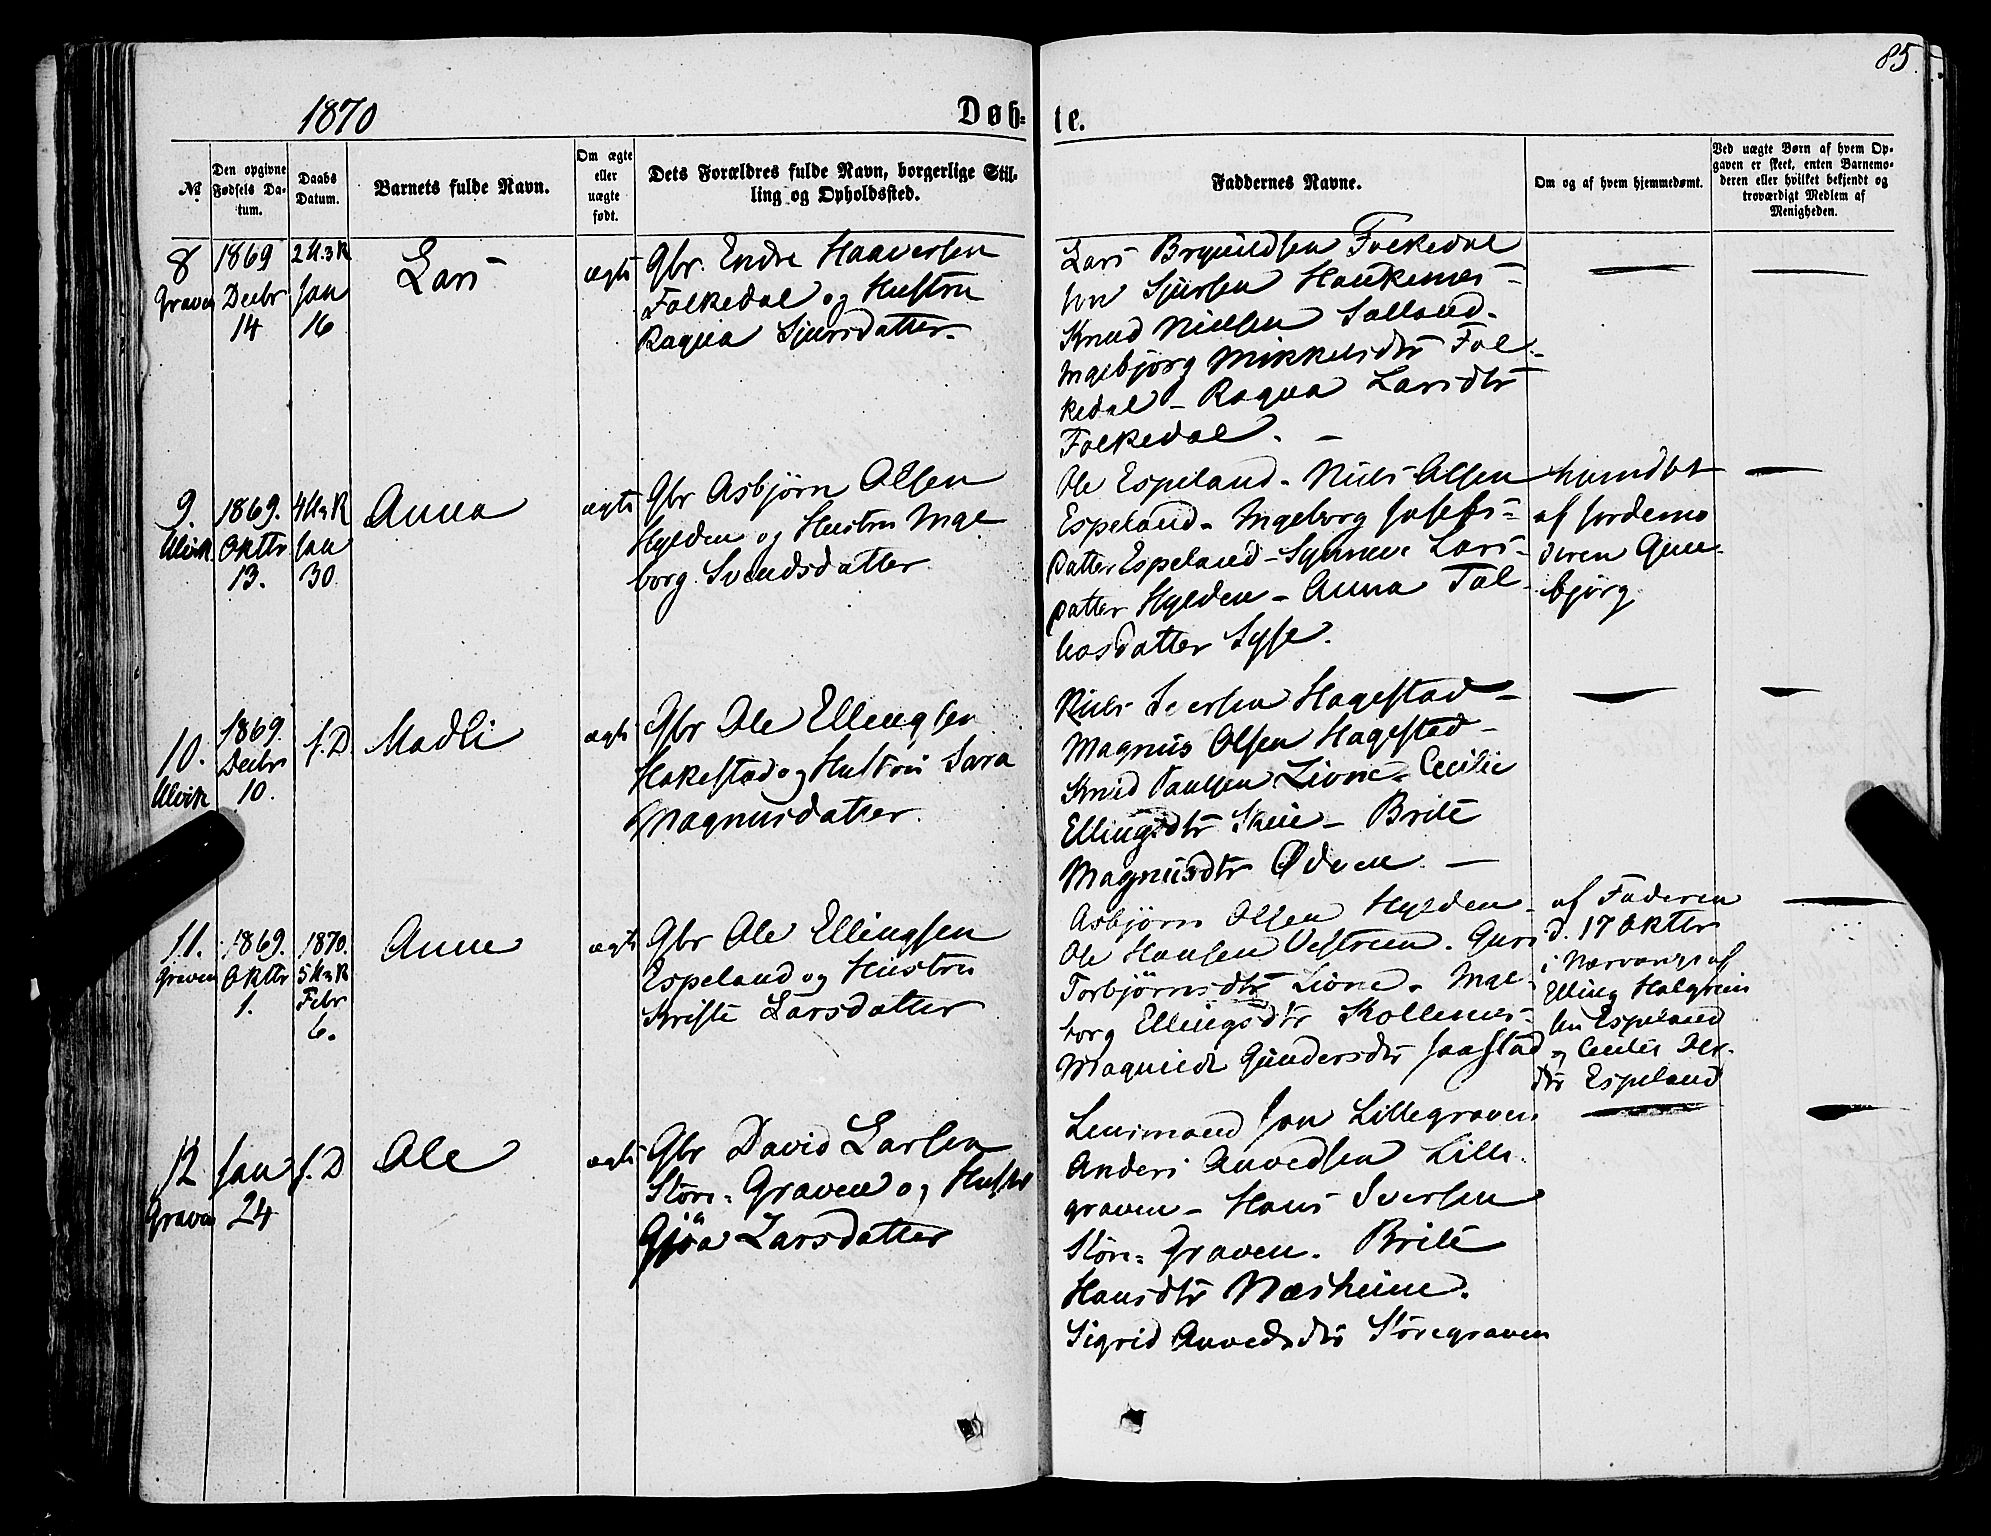 85.
1870
Døb-
te.
No
Den opgivne Fødsels Da-
tum.
Daabs Datum.
Barnets fulde Navn.
Om ægte eller uægte født.
Dets Forældres fulde Navn, borgerlige Stil-
ling og Opholdssted.
Faddernes Navne.
Om og af hvem hjemmedømt.
Ved uægte Børn af hvem Op-
gaven er skeet, enten Barnemo-
deren eller hvilket bekjendt og
troværdigt Medlem af
Menigheden.
8
Graven
1869
Decbr
14
Jan
16
Lars
ægte
Gbr. Endre Haaversen
Folkedal og Hustru
Ragna Sjursdatter
Lars Brynildsen Folkedal
Sjursen Haukenes-
Knud Nielsen Salland-
Ingebjørg Mikkelsdtr Fol-
kedal - Ragna Larsdtr
Folkedal. -
9.
Ulvik
1869.
Oktbr
13.
Jan
30
Anna
ægte
Gbr Asbjørn Olsen
Hylden og Hustru Inge
borg Svendsdatter
Ole Espeland - Niels Olsen
Espeland - Ingeborg Josefs-
datter Espeland - Synneve Lars-
datter Hylden - Anna Tol-
lasdatter Syse.
hjemdbt
af Jordemo
deren Gun-
bjørg
10.
Ulvik
1869.
Decbr
10.
s. D.
Madli
ægte
Gbr Ole Ellingsen
Hakestad og Hustru Sara
Magnusdatter.
Niels Iversen Hagestad -
Magnus Olsen Hagestad -
Knud Paulsen Lione - Cecilie
Ellingsdtr Skeie - Brite
Magnusdtr Ødven -
11.
Graven
1869.
Oktbr
1.
1870.
Febr
6.
Anne
ægte
Gbr Ole Ellingsen
Espeland og Hustru
Kriste Larsdatter
Asbjørn Olsen Hylden -
Ole Hansen Vestrem. Guri
Torbjørnsdtr Lione - Inge-
borg Ellingsdtr Kollenes-
Magnilde Gundersdtr Jaastad
af Faderen
d. 17 Oktbr
i Nærværelse af
Elling Halgrim
sen Espeland
og Cecilie
dtr Espeland
12
Graven
Jan
24
s. D
Ole
ægte
Gbr David Larsen
Støre-Graven og Hustru
Gjøa Larsdatter
Lensmand Jon Lillegraven
Anders Anvedsen Lille-
graven - Hans Iversen
Støre-Graven. Brite
Hansdtr Næsheim.
Sigrid Anvedsdtr Støregraven